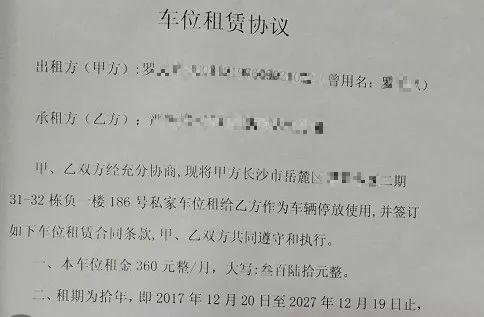 车位租赁协议
出租方（甲方）:罗 （曾用名：罗 ）
承租方（乙方）：
甲、乙双方经充分协商,现将甲方长沙市岳麓区 二期
31-32 栋负一楼 186 号私家车位租给乙方作为车辆停放使用,并签订
如下车位租赁合同条款,甲、乙双方共同遵守和执行。
一、本车位租金 360 元整/月，大写:叁百陆拾元整。
二、租期为拾年，即 2017 年 12 月 20 日至 2027 年 12 月 19 日止，